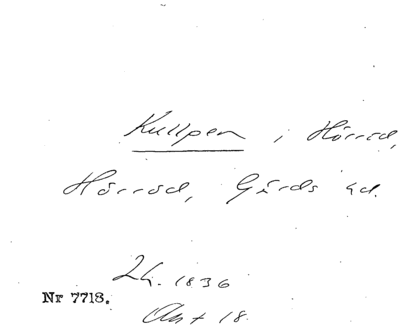 Kullpen, i Hörröd,
Hörröd, Gärds hd.
Lh. 1836
Nr 7718.
Akt 18.